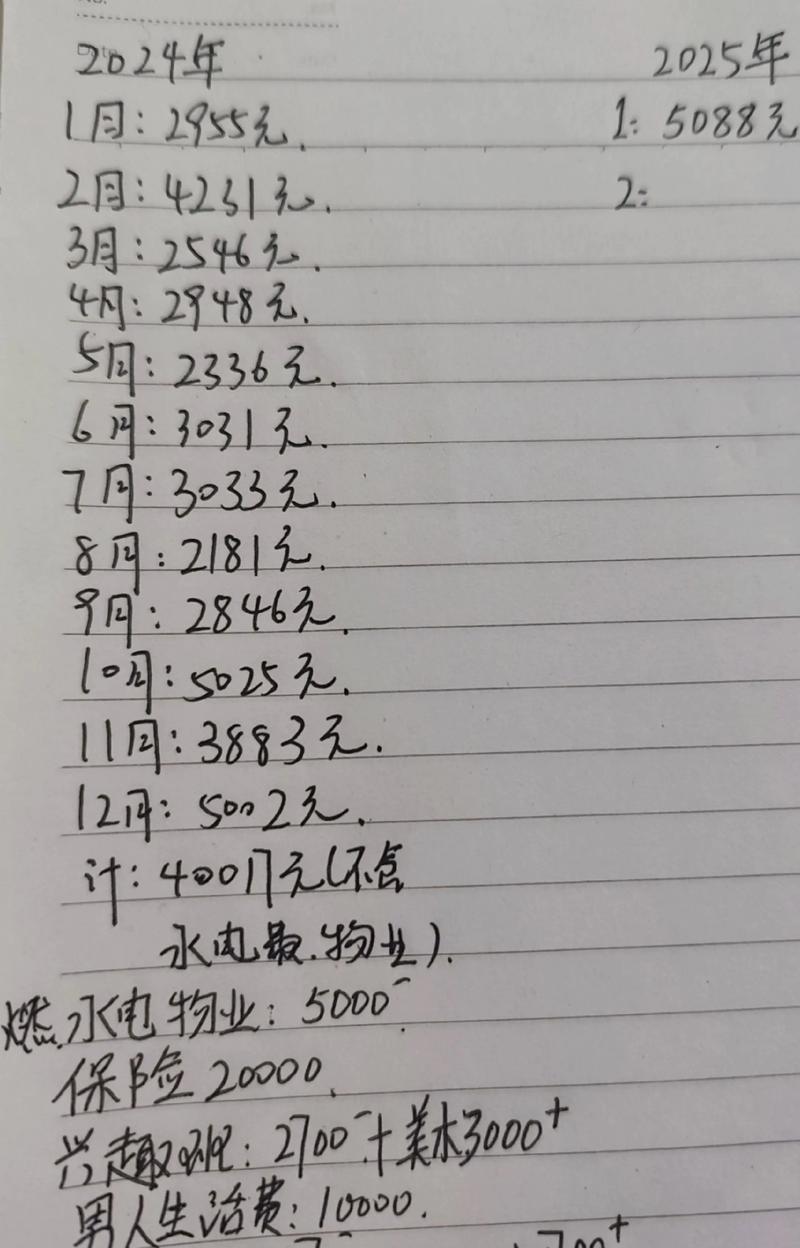 2024年 2025年
1月：2955元. 1：5088元
2月：4231元. 2：
3月：2546元.
4月：2948元.
5月：2336元.
6月：3031元.
7月：3033元.
8月：2181元.
9月：2846元.
10月：5025元.
11月：3883元.
12月：5002元.
计：40017元(不含
水电.物业).
燃.水电物业：5000⁻.
保险20000.
兴趣班：2700⁻+美术3000⁺
男人生活费：10000.